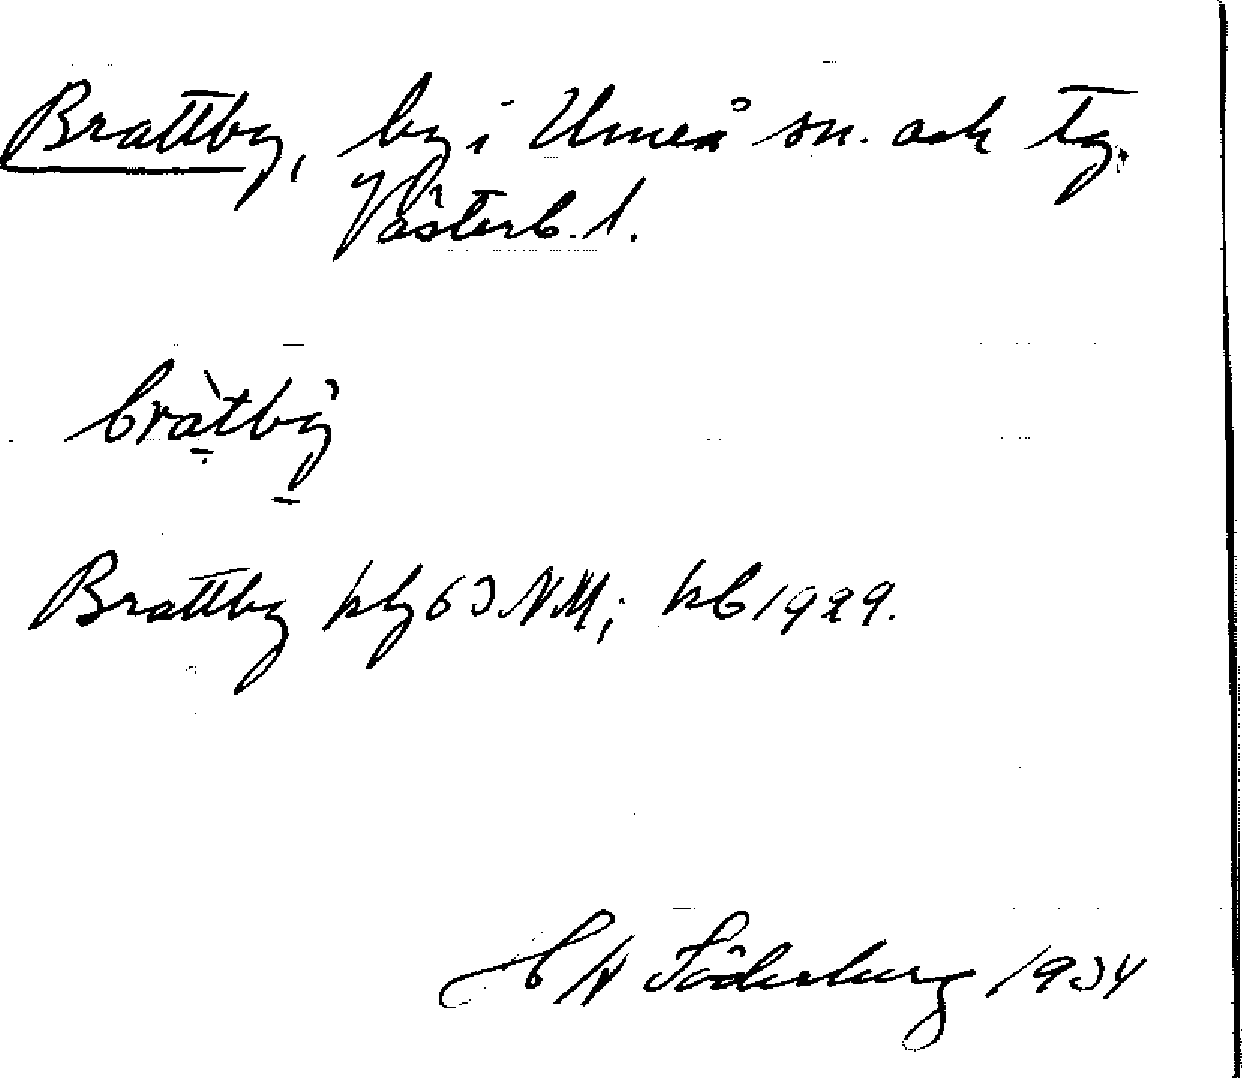 Brattby, by i Umeå sn. och tg.
Västerb. l.
bràtbỳ
Brattby kbl 63 NM; kb 1929.
Söderberg 1934